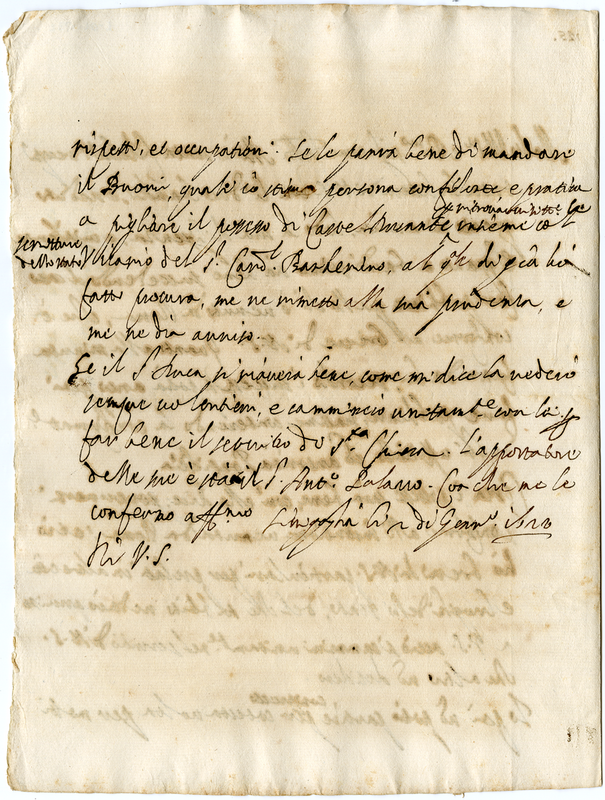 125.
rispetti, et occupationi. Se le parrà bene di mandare
il Buoni, quale io stimo persona confidente e pratica
a pigliare il possesso di Castel Durante insieme co 'l
scritture
dello stato
Vicario del S.r Card.l Barberino, al q.le di già hà
fatto procura, me ne rimetto alla sua prudenza, e
me ne dia auuiso.
Se il S.r Duca si riauerà bene, come mi dice la vederò
sempre uolentieri, e comincio unitam.te con lei
far bene il seruitio di S.ta Chiesa. L'apportatore
delle me è stato il S.r Ant.o . Con che me le
confermo aff.mo li 2 di Genn.o
Di V.S.